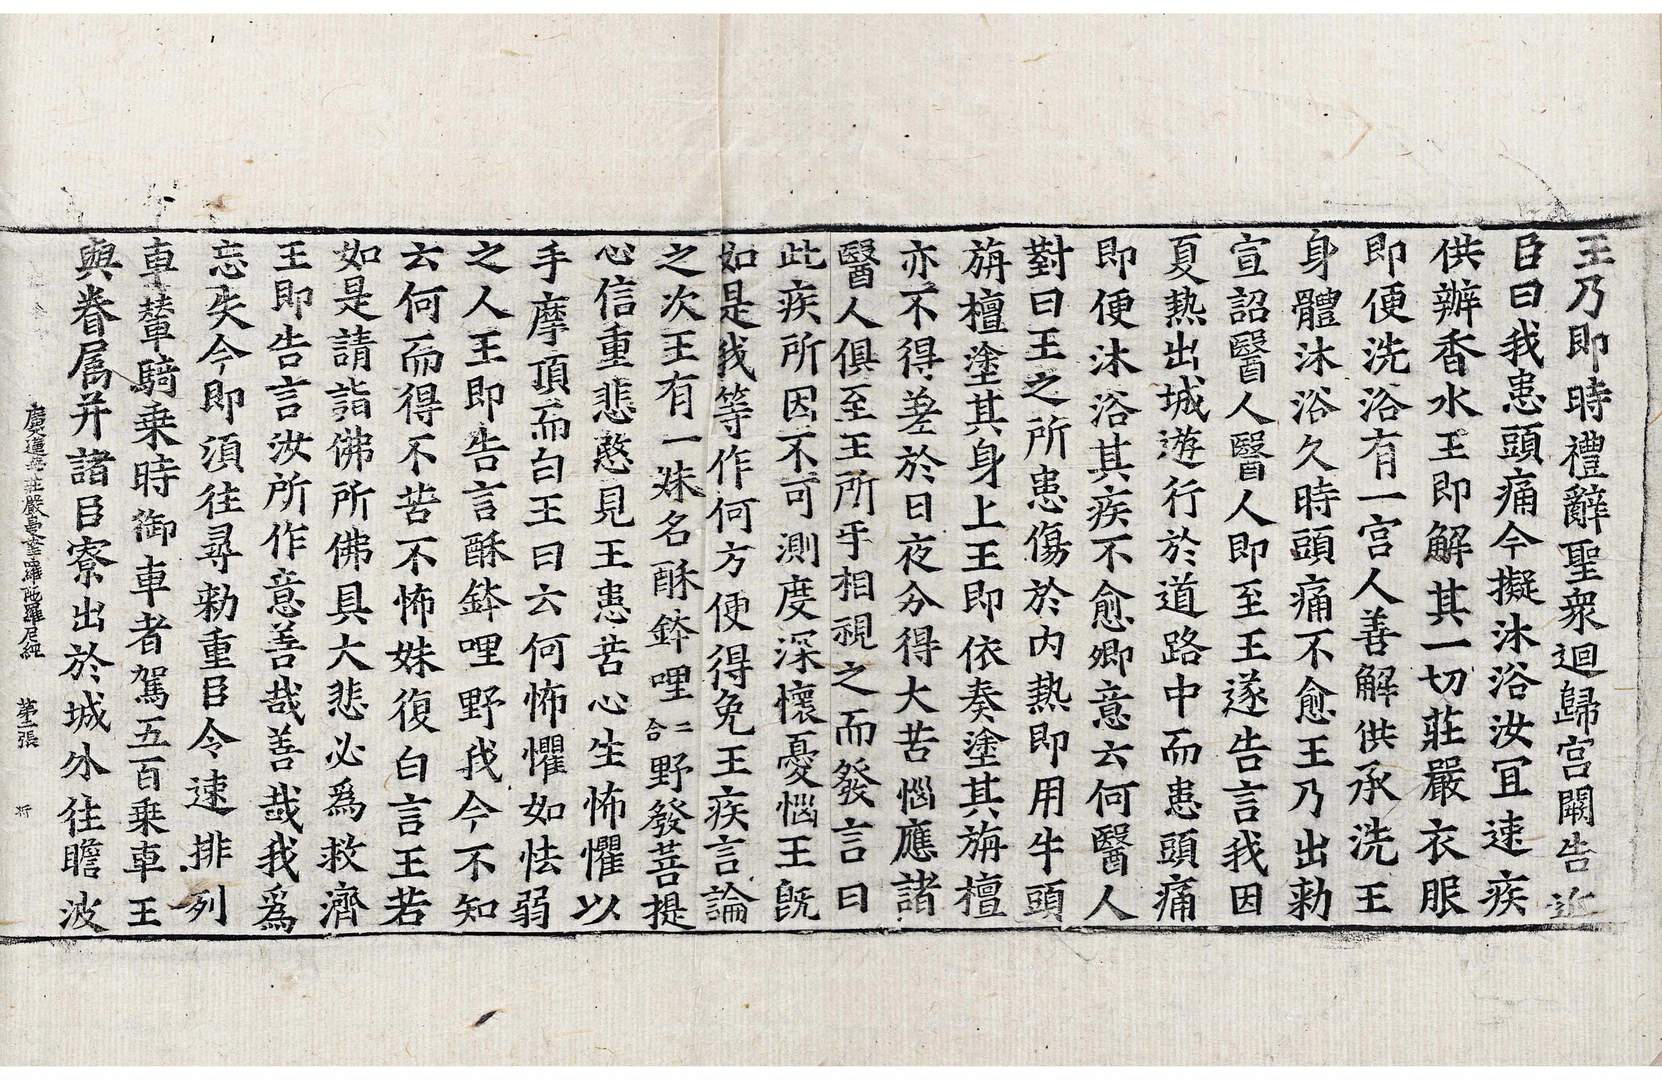 王乃即時禮辭聖衆迴歸宮闕告近
臣曰我患頭痛今擬沐浴汝冝速疾
供辦香水王即解其一切莊嚴衣服
即便洗浴有一宮人善解供承洗王
身體沐浴久時頭痛不愈王乃出勑
宣詔醫人醫人即至王遂告言我因
夏熱出城遊行於道路中而患頭痛
即便沐浴其疾不愈卿意云何醫人
對曰王之所患傷於内熱即用牛頭
旃檀塗其身上王即依奏塗其旃檀
亦不得差於日夜分得大苦惱應諸
醫人俱至王所乎相視之而發言曰
此疾所因不可測度深懷憂惱王旣
如是我等作何方便得免王疾言論
之次王有一妹名酥鉢哩二合野發菩提
心信重悲愍見王患苦心生怖懼以
手摩頂而白王曰云何怖懼如怯弱
之人王即告言酥鉢哩野我今不知
云何而得不苦不怖妹復白言王若
如是請詣佛所佛具大悲必爲救濟
王即告言汝所作意善哉善哉我爲
忘失今即須往尋勑重臣令速排列
車輦騎乗時御車者駕五百乗車王
與眷属并諸臣寮出於城外往瞻波
廣大蓮華莊嚴曼拏羅陁羅尼經 第二張